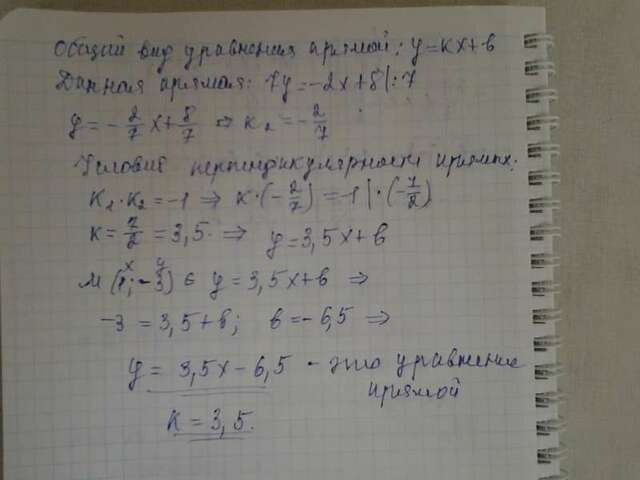 Общий вид уравнения прямой: y = kx + b
Данная прямая: 7y = -2x + 8 |: 7
y = -2/7 x + 8/7 ⇒ k₂ = -2/7
Условия перпендикулярности прямых:
k₁ · k₂ = -1 ⇒ k · (-2/7) = -1 | · (-7/2)
k = 7/2 = 3,5. ⇒ y = 3,5x + b
x y
M (1; -3) ∈ y = 3,5x + b ⇒
-3 = 3,5 + b; b = -6,5 ⇒
y = 3,5x - 6,5 - это уравнение
прямой
k = 3,5.